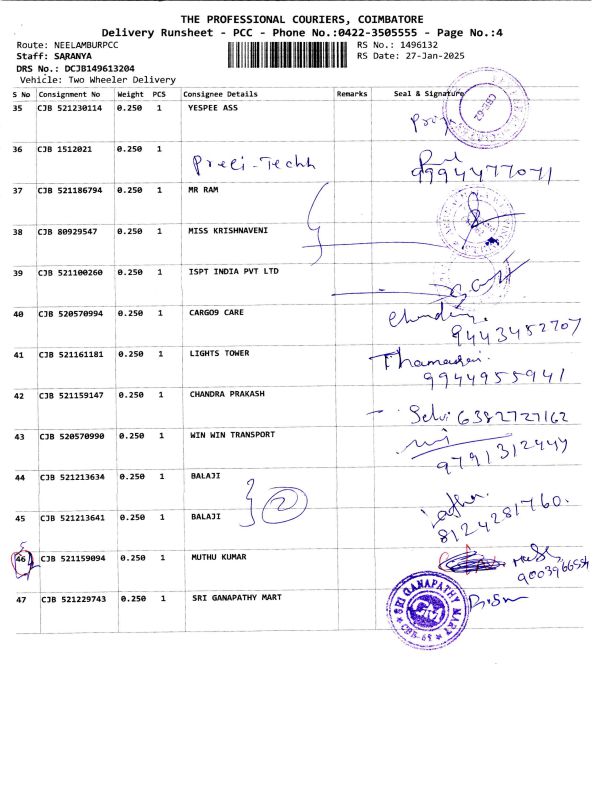 THE PROFESSIONAL COURIERS, COIMBATORE
Delivery Runsheet - PCC - Phone No.:0422-3505555 - Page No.:4
Route: NEELAMBURPCC
RS No.: 1496132
Staff: SARANYA
RS Date: 27-Jan-2025
DRS No.: DCJB149613204
Vehicle: Two Wheeler Delivery
S No Consignment No Weight PCS Consignee Details Remarks Seal & Signature
35 CJB 521230114 0.250 1 YESPEE ASS
36 CJB 1512021 0.250 1 Preci-Techh
9994477071
37 CJB 521186794 0.250 1 MR RAM
38 CJB 80929547 0.250 1 MISS KRISHNAVENI
39 CJB 521100260 0.250 1 ISPT INDIA PVT LTD
40 CJB 520570994 0.250 1 CARGO9 CARE
9443452707
41 CJB 521161181 0.250 1 LIGHTS TOWER
9944955941
42 CJB 521159147 0.250 1 CHANDRA PRAKASH
Selvi 6382727162
43 CJB 520570990 0.250 1 WIN WIN TRANSPORT
9791312449
44 CJB 521213634 0.250 1 BALAJI
2
45 CJB 521213641 0.250 1 BALAJI
8124281760.
46 CJB 521159094 0.250 1 MUTHU KUMAR
9003966554
47 CJB 521229743 0.250 1 SRI GANAPATHY MART
SRI GANAPATHY MART
CBE-62